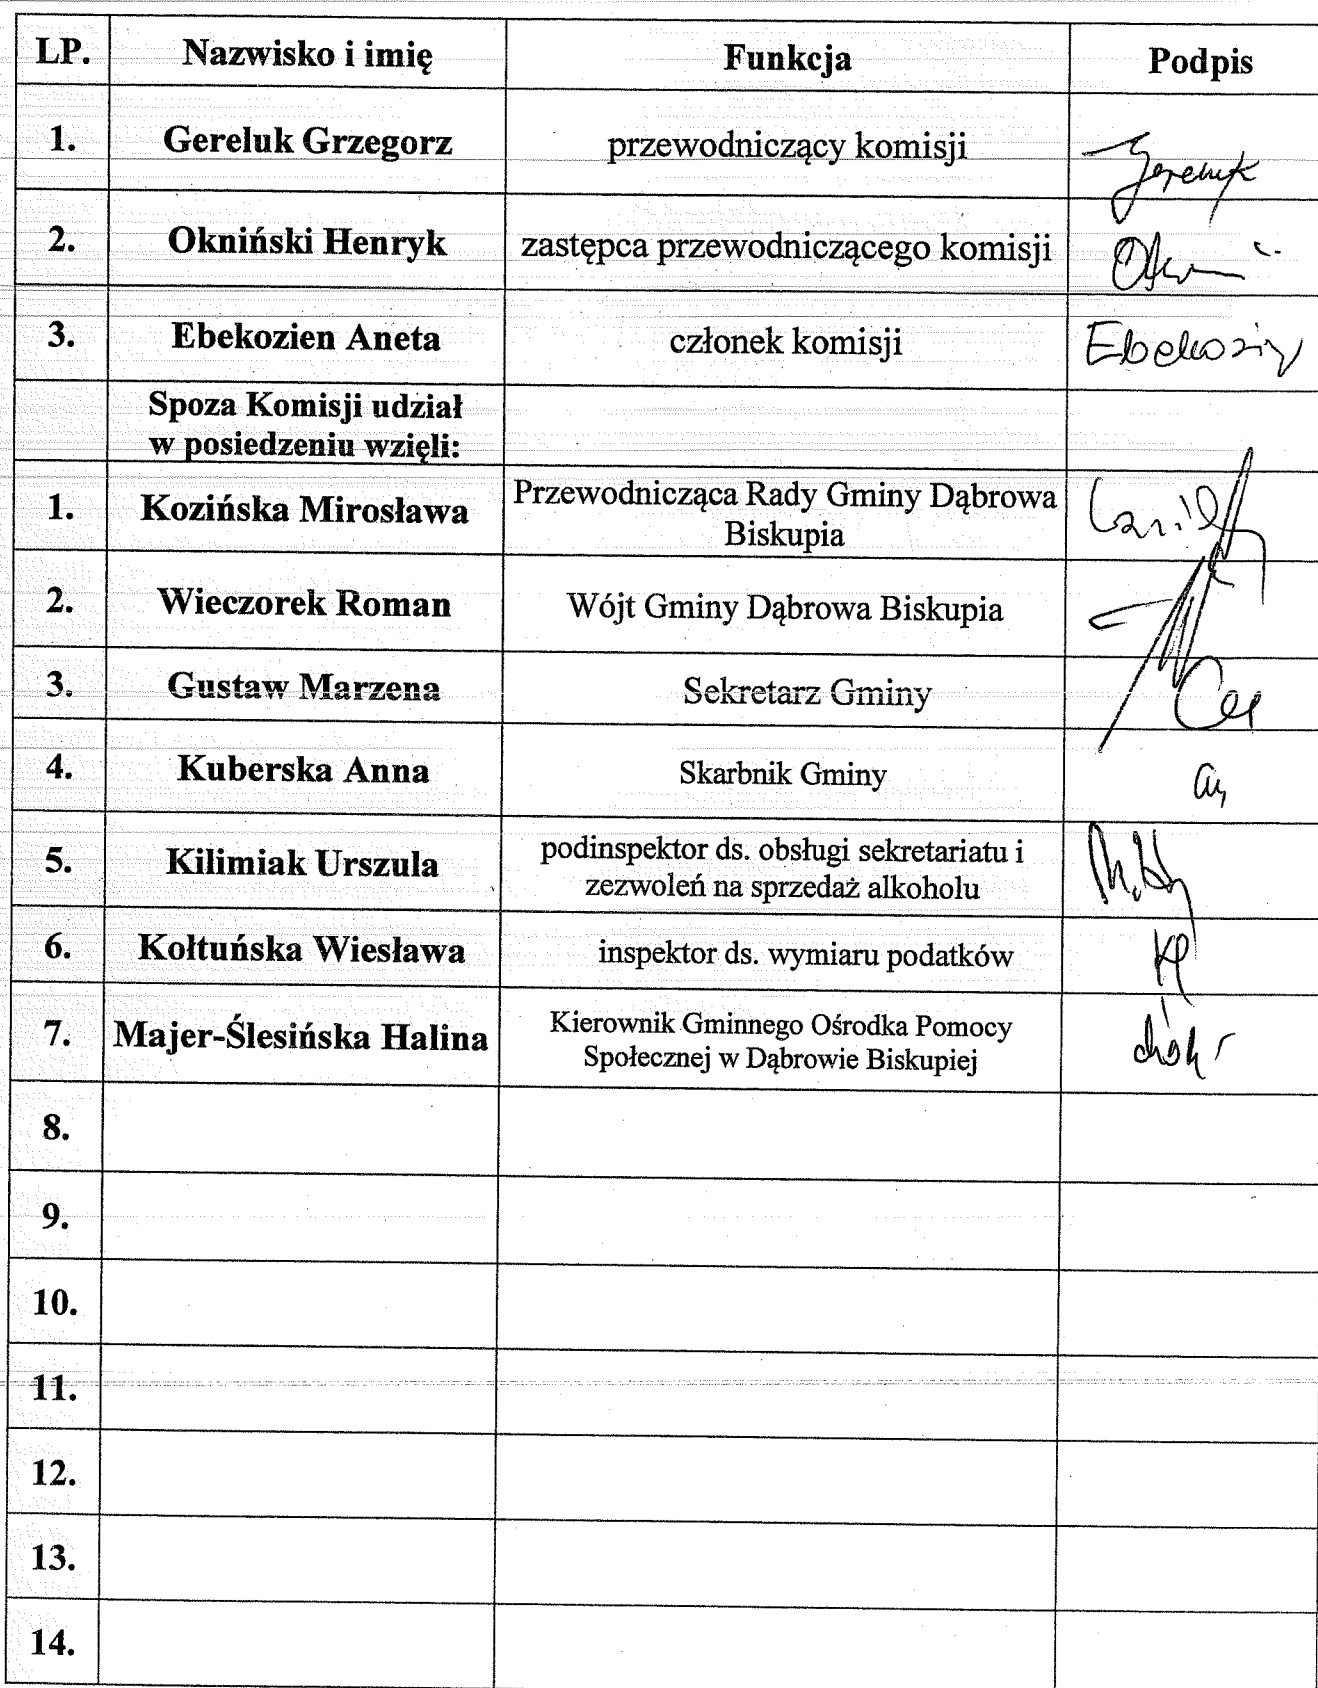 LP. Nazwisko i imię Funkcja Podpis
1. Gereluk Grzegorz przewodniczący komisji
2. Okniński Henryk zastępca przewodniczącego komisji
3. Ebekozien Aneta członek komisji
Spoza Komisji udział
w posiedzeniu wzięli:
1. Kozińska Mirosława Przewodnicząca Rady Gminy Dąbrowa
Biskupia
2. Wieczorek Roman Wójt Gminy Dąbrowa Biskupia
3. Gustaw Marzena Sekretarz Gminy
4. Kuberska Anna Skarbnik Gminy
5. Kilimiak Urszula podinspektor ds. obsługi sekretariatu i
zezwoleń na sprzedaż alkoholu
6. Kołtuńska Wiesława inspektor ds. wymiaru podatków
7. Majer-Ślesińska Halina Kierownik Gminnego Ośrodka Pomocy
Społecznej w Dąbrowie Biskupiej
8.
9.
10.
11.
12.
13.
14.